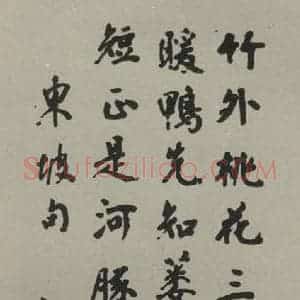 竹外桃花三
暖鴨先知蔞
短正是河豚
東坡句